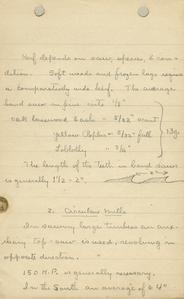 Kerf depends on saw, species, & con-
dition. Soft woods and frozen logs require
a comparatively wide kerf. The average
band saw in pine cuts 1/8"
oak basswood & ash = 5/32" scant
Yellow Poplar = 5/32" full
Loblolly = 3/16"
The length of the teeth in band saws
is generally 1 1/2 - 2".
2. Circular Mills
In sawing large timber an aux-
iliary top-saw is used, revolving in
opposite direction.
150 H.P. is generally necessary.
In the South an average of 64"